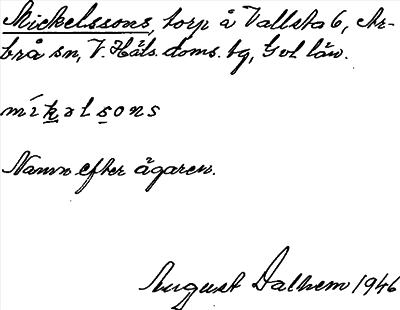 Mickelssons, torp å Vallsta 6, Ar-
brå sn, V. Häls. doms. bg, Gvl län.
míkəlsons
Namn efter ägaren.
August Dalhem 1946